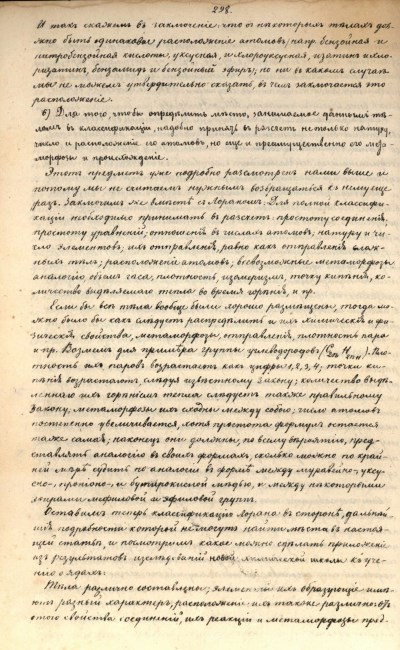 298.
И такъ скажемъ въ заключеніе что въ нѣкоторыхъ тѣлахъ дол-
жно быть одинаковое расположеніе атомовъ; напр. бензойная и
нитробензойная кислоты, уксусная, и хлороуксусная, изатинъ и хло-
ризатинъ, бензамидъ и бензойный эфиръ; но ни въ какомъ случаѣ
мы не можемъ утвердительно сказать, въ чемъ заключается это
расположеніе.
6) Для того, чтобы опредѣлить мѣсто, занимаемое даннымъ тѣ-
ломъ въ классификаціи, надобно принять въ расчетъ не только натуру,
число и расположеніе его атомовъ, но еще и преимущественно его мета-
морфозы и происхожденіе.
Этотъ предметъ уже подробно разсмотренъ нами выше и
потому мы не считаемъ нужнымъ возвращаться къ нему еще
разъ. Заключимъ же вмѣстѣ съ Лораномъ: Для полной классифи-
каціи необходимо принимать въ расчетъ: простоту соединеній,
простоту уравненій; отношенія въ числахъ атомовъ, натуру и чи-
сло элементовъ; ихъ отправленія, равно какъ отправленія слож-
ныхъ тѣлъ; расположеніе атомовъ; всевозможныя метаморфозы
аналогію, объемъ газа, плотность, изоморфизмъ, точку кипѣнія, ко-
личество выдѣляемаго тепла во время горѣнія, и пр.
Если бы всѣ тѣла вообще были хорошо размѣщены, тогда мо-
жно было бы какъ слѣдуетъ распредѣлить и ихъ химическія и фи-
зическія свойства, метаморфозы, отправленія, плотность пара
и пр. Возмемъ для примѣра группы углеводородовъ Плот-
ность ихъ паровъ возрастаетъ какъ цифры 1, 2, 3, 4; точки ки-
пѣнія возрастаютъ, слѣдуя извѣстному закону; количество выдѣ-
леннаго ихъ горѣніемъ тепла слѣдуетъ также правильному
закону, метаморфозы ихъ сходны между собою; число атомовъ
постепенно увеличивается, хотя простота формулъ остается
таже самая; наконецъ они должны, по всему вѣроятію, пред-
ставлять аналогію въ своихъ формахъ, сколько можно по край-
ней мѣрѣ судить по аналогіи въ формѣ между муравьино-, уксу-
сно-, пропіоно- и бутирокислой мѣдью, и между нѣкоторыми
метиловой и этиловой группъ.
Оставимъ теперь классификацію Лорана въ сторонѣ, дальнѣй-
шія подробности которой не могутъ найти мѣста въ настоя-
щей статьѣ, и посмотримъ какое можно сдѣлать приложеніе
изъ результатовъ изслѣдованій новой химической школы къ уче-
нію о ядахъ.
Тѣла различно составлены; элементы ихъ образующіе имѣ-
ютъ разный характеръ, расположеніе ихъ также различно: отъ
этого свойства соединеній, ихъ реакціи и метаморфозы пред-